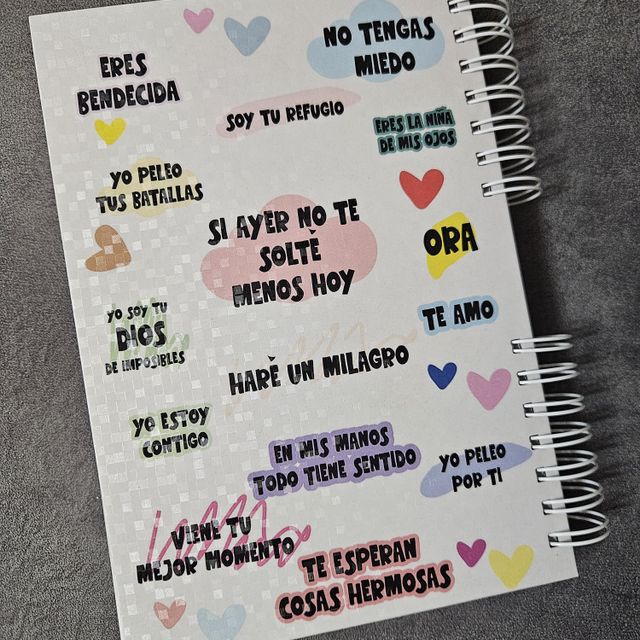 NO TENGAS
MIEDO
ERES
BENDECIDA
SOY TU REFUGIO
ERES LA NIÑA
DE MIS OJOS
YO PELEO
TUS BATALLAS
SI AYER NO TE
SOLTÈ
MENOS HOY
ORA
YO SOY TU
DIOS
DE IMPOSIBLES
TE AMO
HARÈ UN MILAGRO
YO ESTOY
CONTIGO
EN MIS MANOS
TODO TIENE SENTIDO
YO PELEO
POR TI
VIENE TU
MEJOR MOMENTO
TE ESPERAN
COSAS HERMOSAS